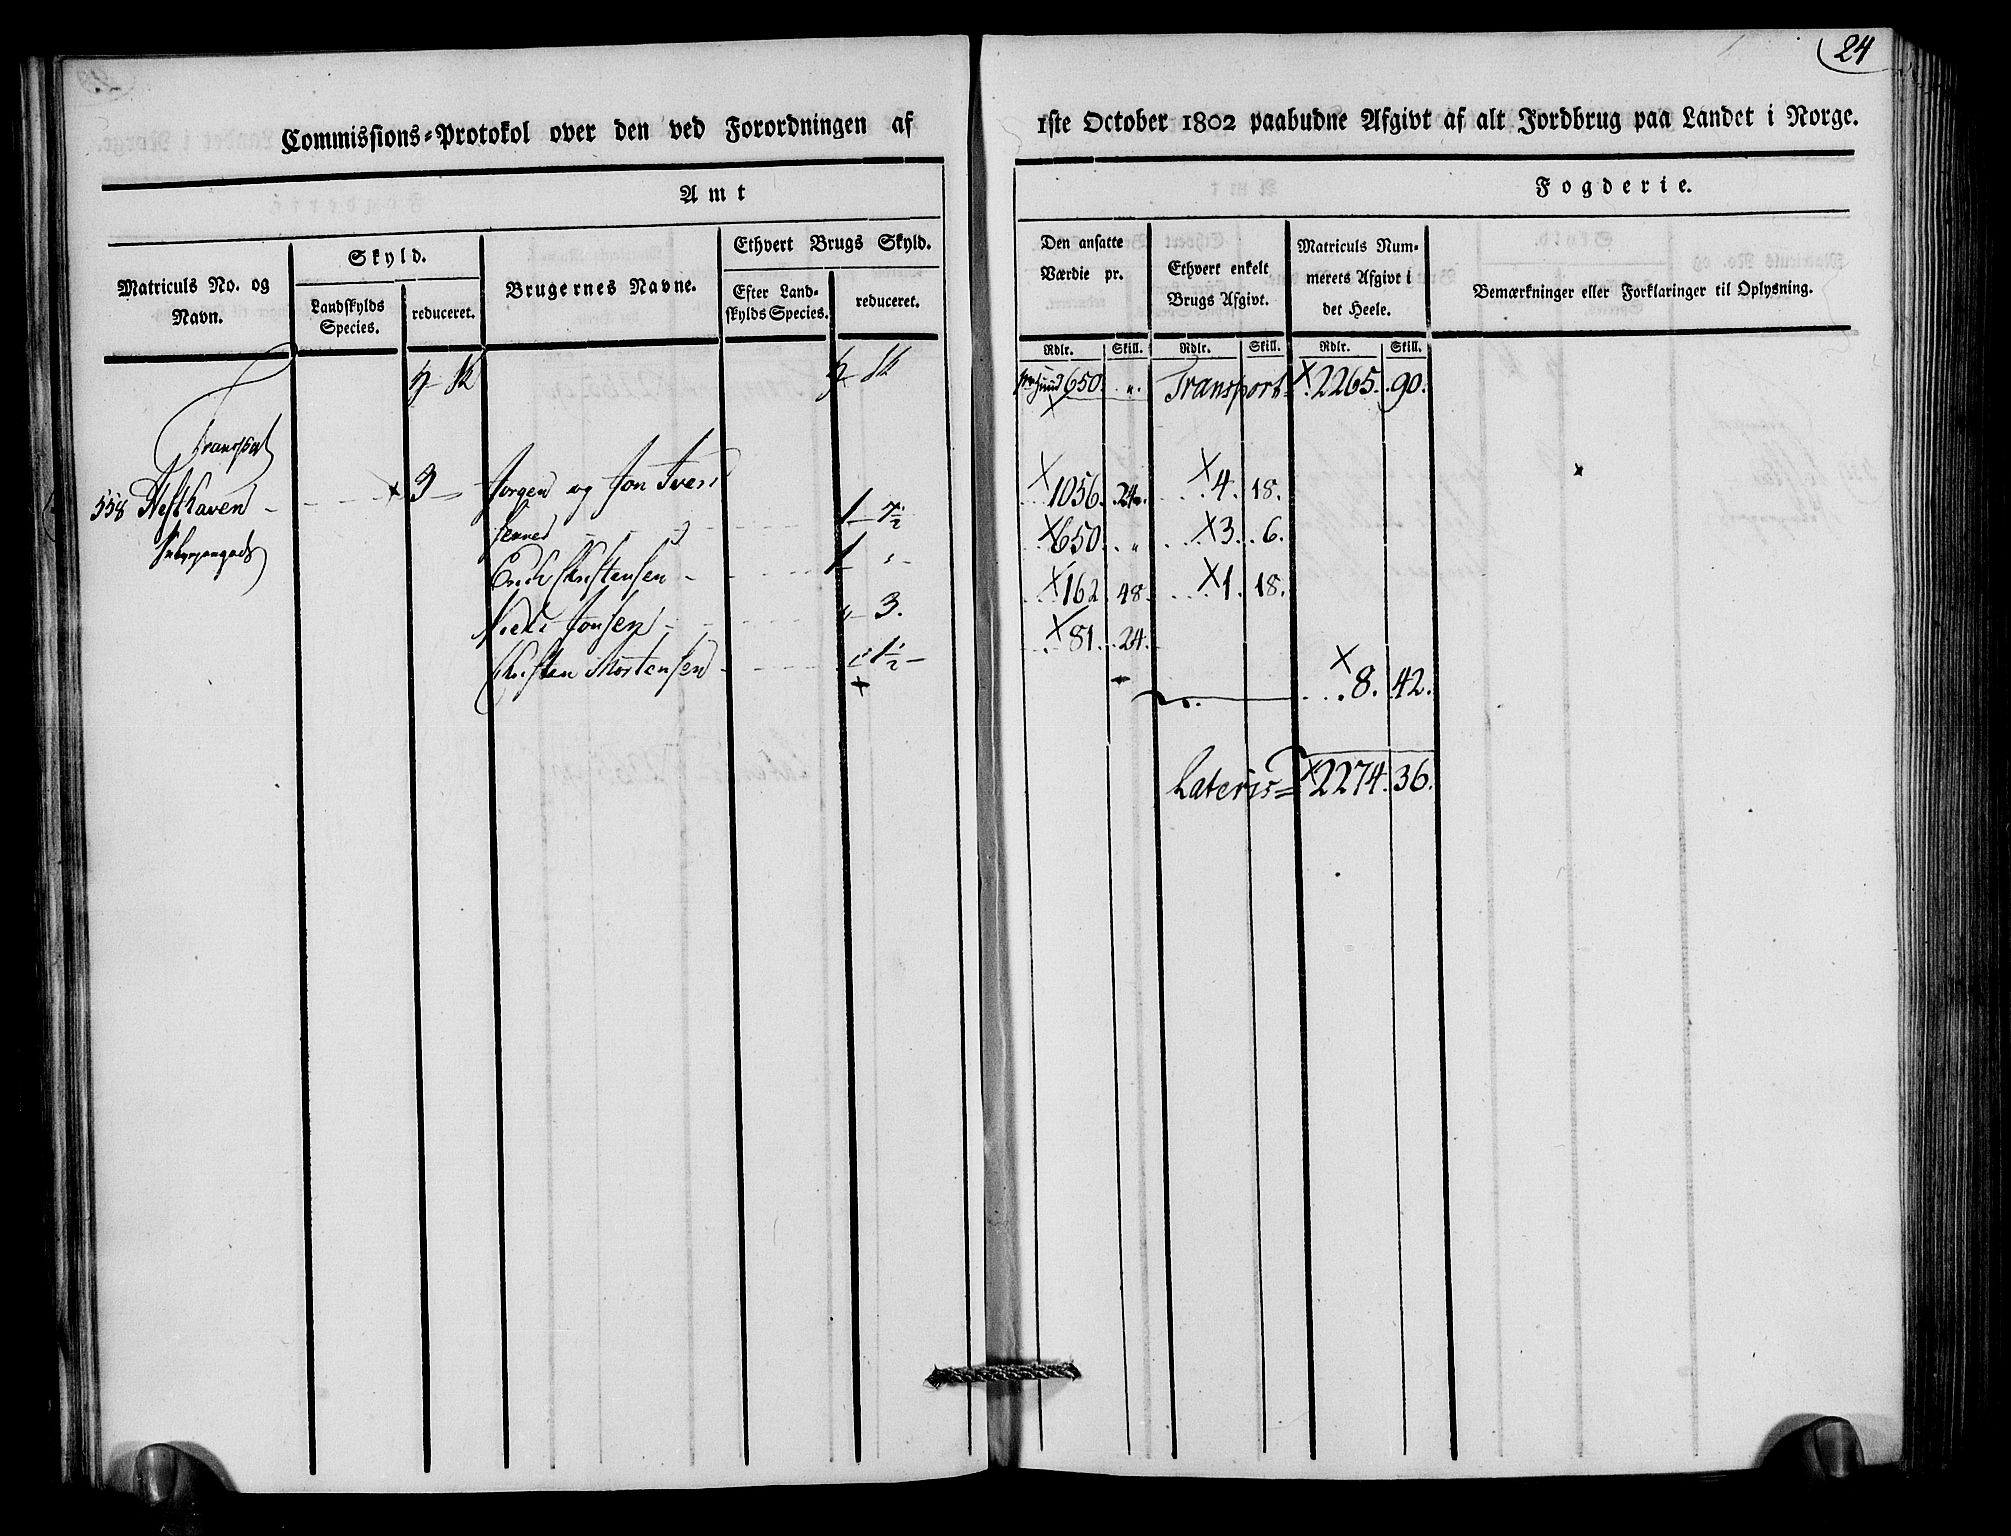 24
Commissions-Protokol over den ved Forordningen af
1ste October 1802 paabudne Afgivt af alt Jordbrug paa Landet i Norge.
Amt
Fogderie.
Matriculs No. og Navn.
Skyld.
Landskylds Species.
reduceret.
Brugernes Navne.
Ethvert Brugs Skyld.
Efter Landskylds Species.
reduceret.
Den ansatte Værdie pr.
Ethvert enkelt Brugs Afgivt.
Matriculs Nummerets Afgivt i det Heele.
Bemærkninger eller Forklaringer til Oplysning.
Rdlr. Skill. Rdlr. Skill. Rdlr. Skill.
650. „. Transport X 2265. 90.
Transport
558 3 Jorgen og Jon Iver
1 7½ X 1056. 24. X 4. 18.
1 X 650. „ X 3. 6.
Christensen
„ 3. X 162 48. X 1. 18.
Jonsen
1½ X 81. 24.
Christen Mortensen
X 8. 42.
Lateris = X 2274. 36.